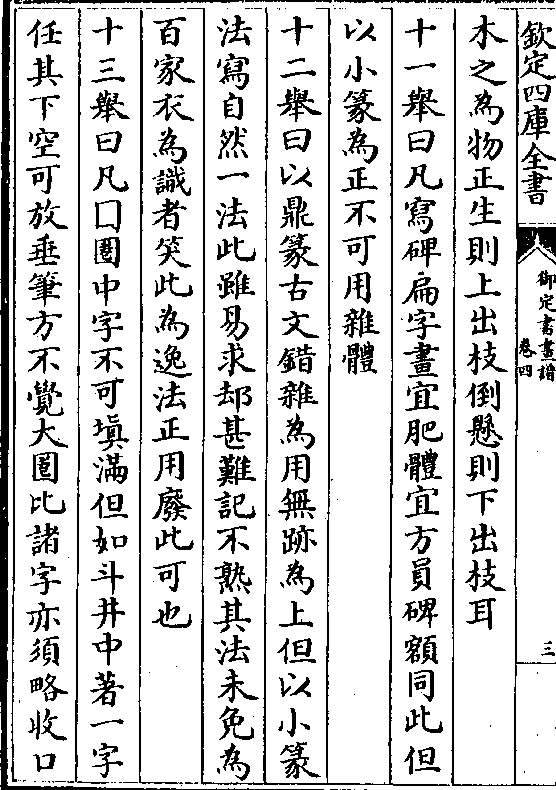 欽定四庫全書
御定書畫譜
卷四
三
木之為物正生則上出枝倒懸則下出枝耳
十一舉曰凡寫碑扁字畫宜肥體宜方員碑額同此但
以小篆為正不可用雜體
十二舉曰以鼎篆古文錯雜為用無跡為上但以小篆
法寫自然一法此雖易求却甚難記不熟其法未免為
百家衣為識者笑此為逸法正用廢此可也
十三舉曰凡囗圈中字不可填滿但如斗井中著一字
任其下空可放垂筆方不覺大圈比諸字亦須略收口